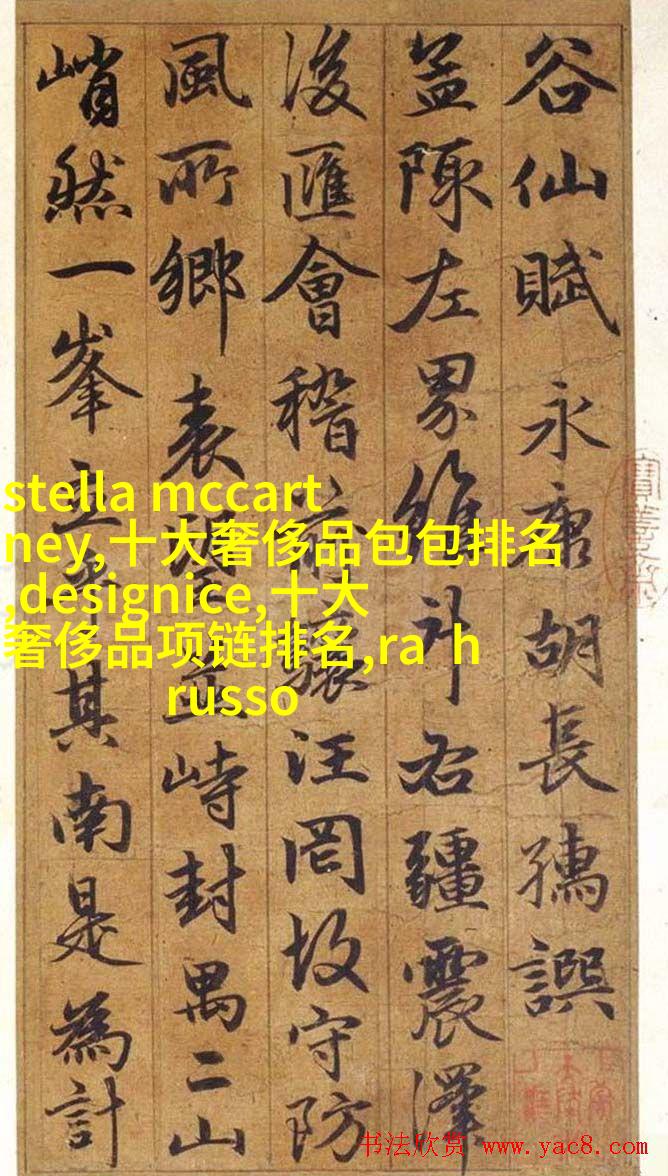 谷仙賦 永康胡長孺譔
左界維斗右疆震澤
後匯會稽前驤汪罔故守防
風所鄉表望並峙封禺二山
峭然一峯立其南是為計
stella mccart
ney,十大奢侈品包包排名
,designice,十大
奢侈品项链排名,ra h
russo
书法欣赏 www.yac8.com